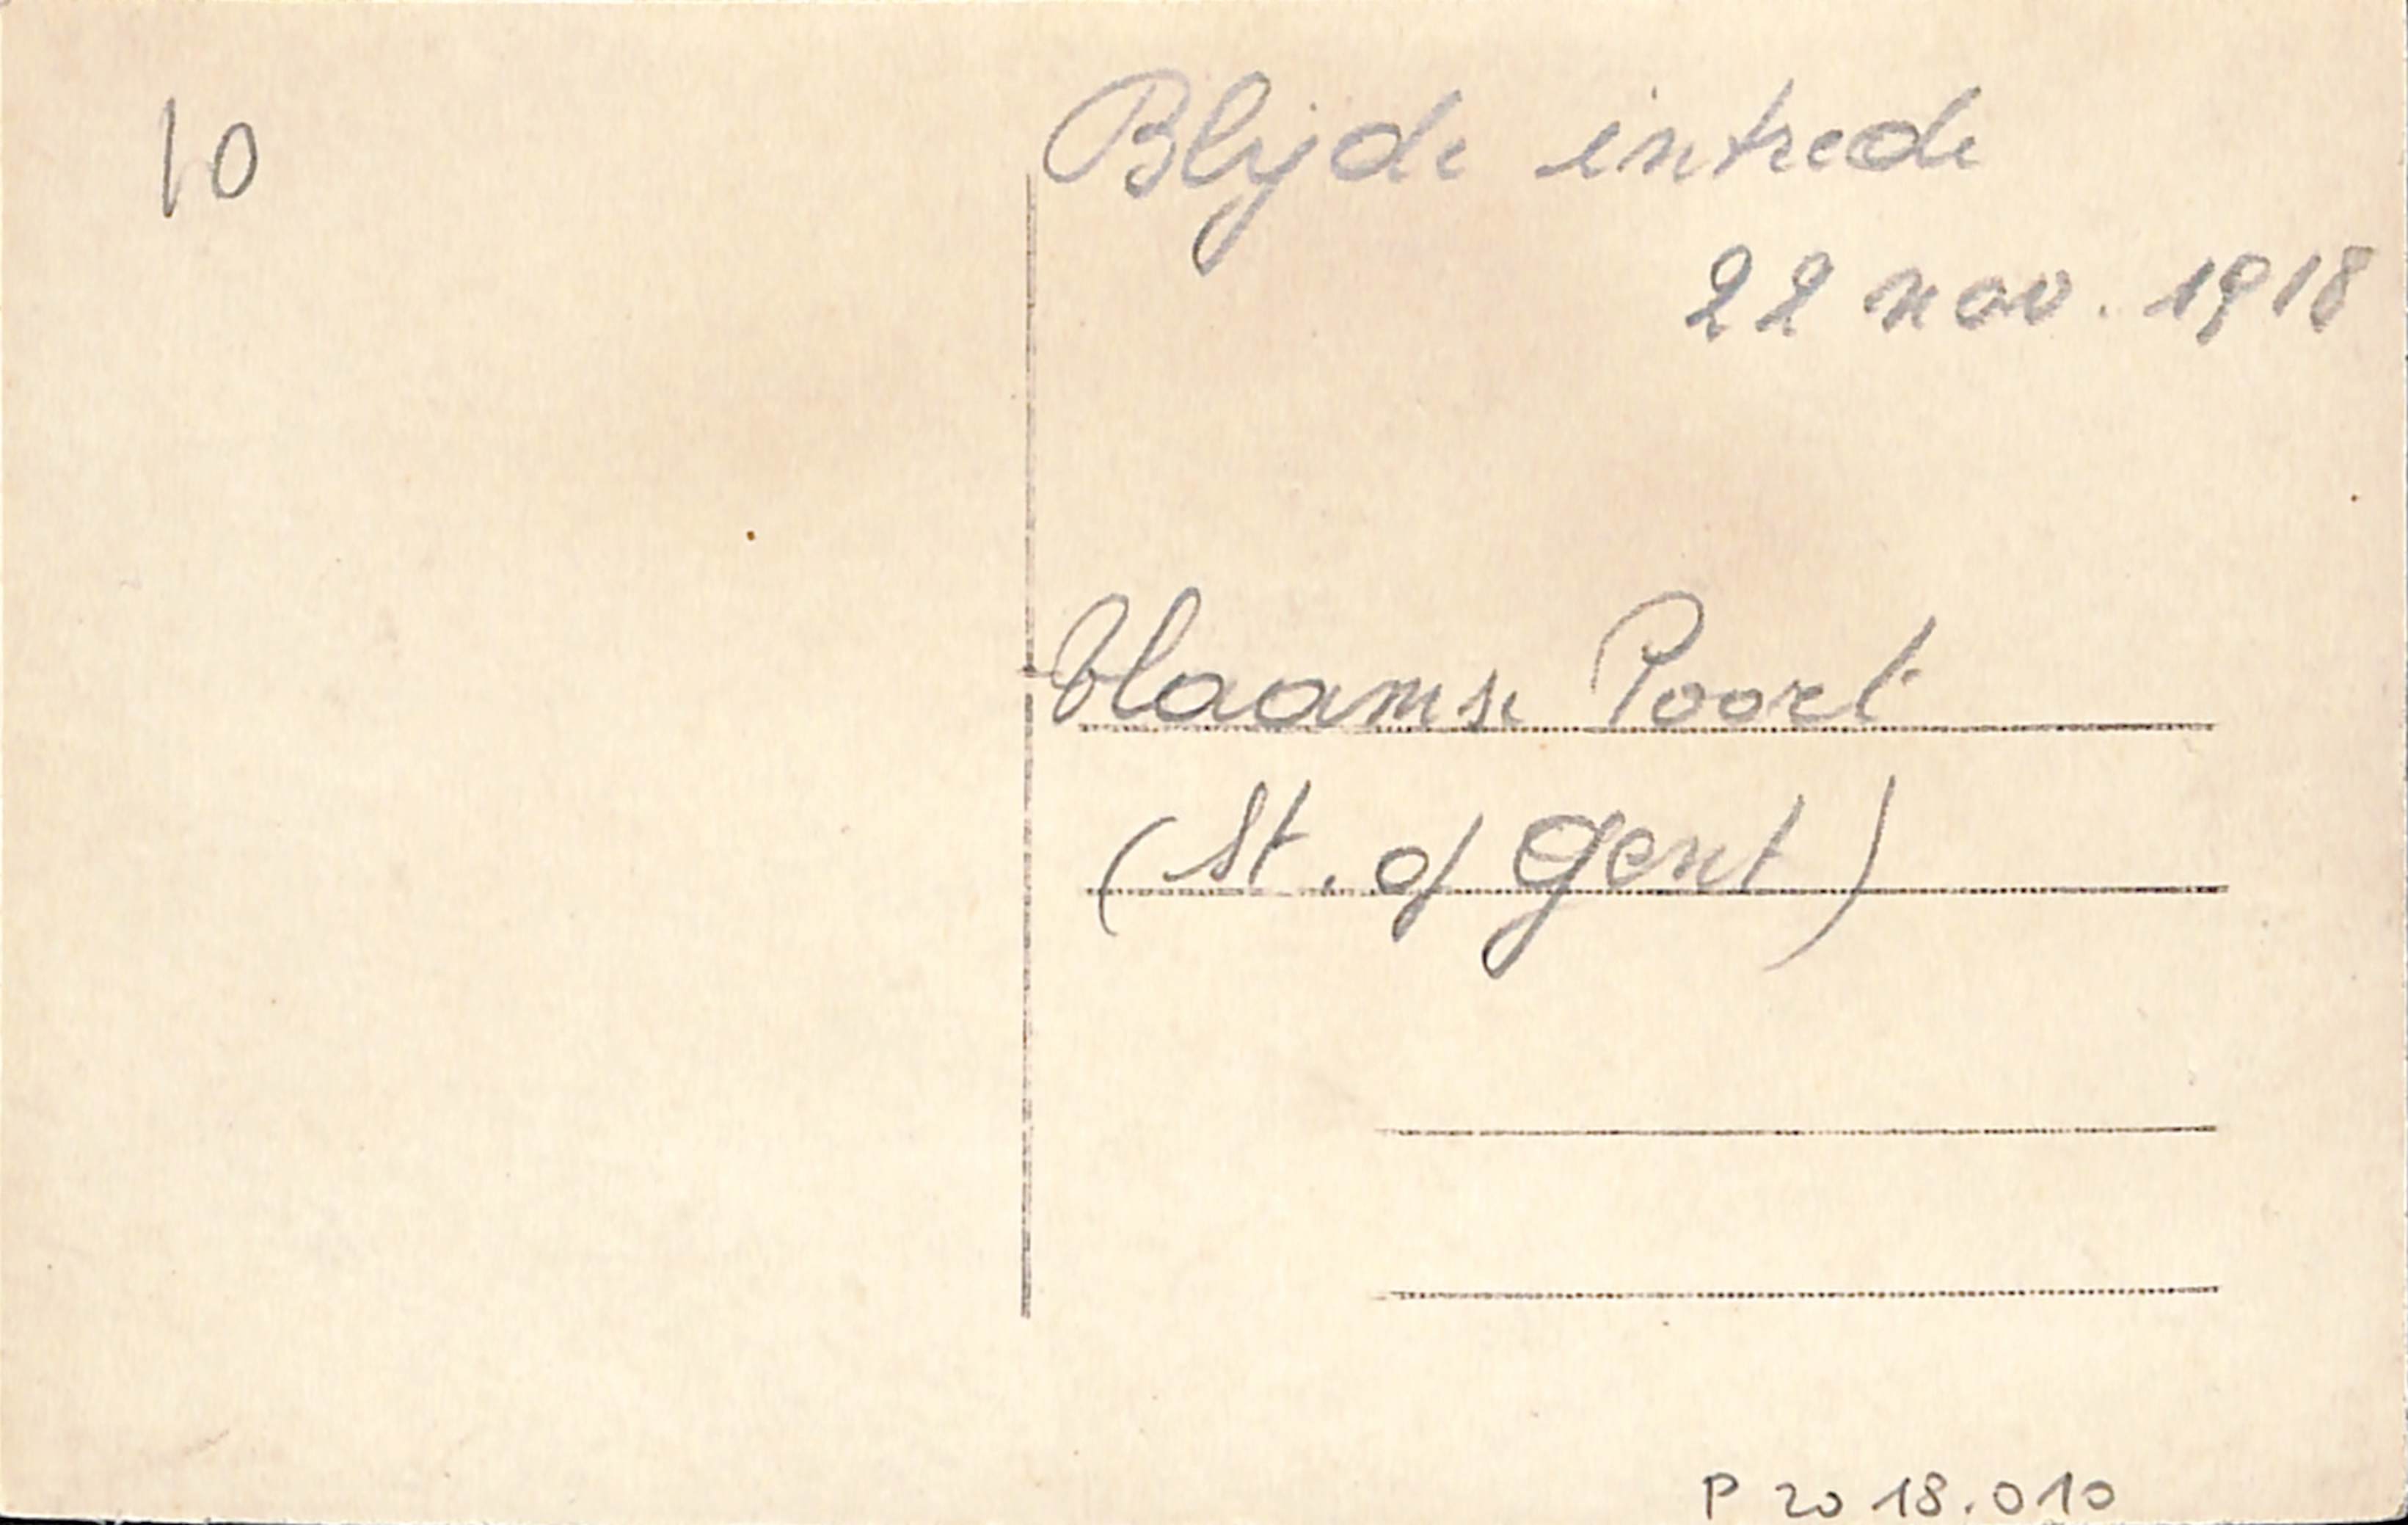 10
Blijde intrede
22 nov. 1918
Vlaamse Poort
(St. of Gent)
P 2018.010